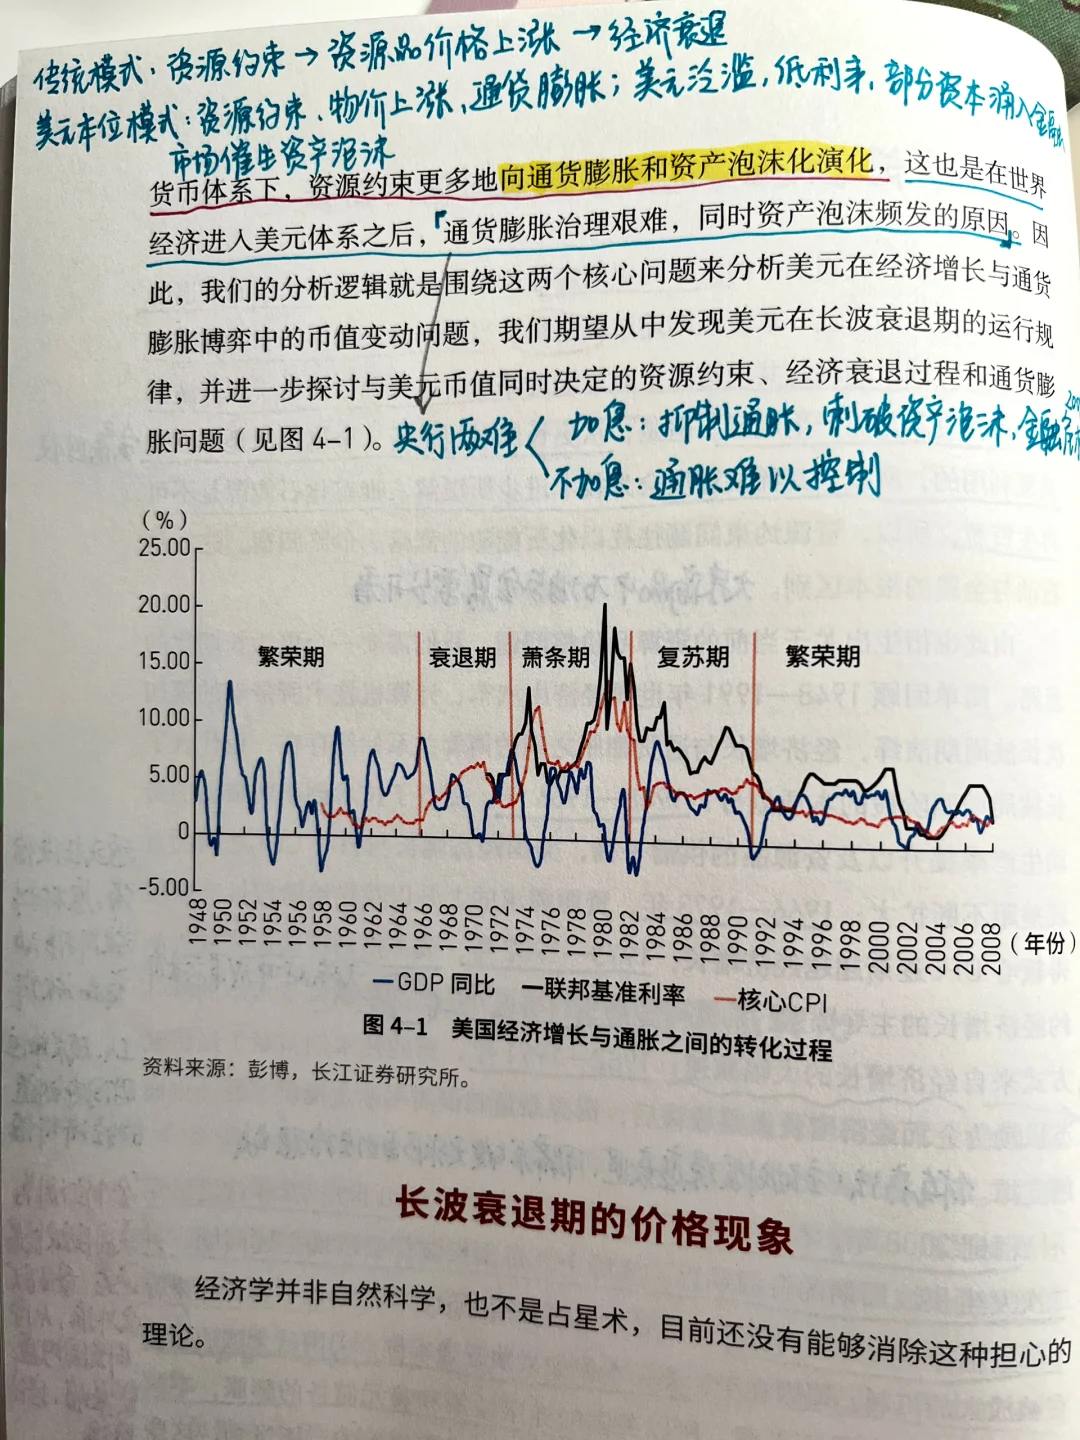 传统模式：资源约束→资源品价格上涨→经济衰退
美元本位模式：资源约束、物价上涨、通货膨胀；美元泛滥，低利率，部分资本涌入金融
市场催生资产泡沫
货币体系下，资源约束更多地向通货膨胀和资产泡沫化演化，这也是在世界
经济进入美元体系之后，「通货膨胀治理艰难，同时资产泡沫频发的原因」。因
此，我们的分析逻辑就是围绕这两个核心问题来分析美元在经济增长与通货
膨胀博弈中的币值变动问题，我们期望从中发现美元在长波衰退期的运行规
律，并进一步探讨与美元币值同时决定的资源约束、经济衰退过程和通货膨
胀问题（见图 4-1）。央行两难
加息：抑制通胀，刺破资产泡沫，金融
不加息：通胀难以控制
（%）
25.00
20.00
15.00
10.00
5.00
0
-5.00
繁荣期 衰退期 萧条期 复苏期 繁荣期
1948 1950 1952 1954 1956 1958 1960 1962 1964 1966 1968 1970 1972 1974 1976 1978 1980 1982 1984 1986 1988 1990 1992 1994 1996 1998 2000 2002 2004 2006 2008（年份）
GDP 同比 联邦基准利率 核心CPI
图 4-1 美国经济增长与通胀之间的转化过程
资料来源：彭博，长江证券研究所。
长波衰退期的价格现象
经济学并非自然科学，也不是占星术，目前还没有能够消除这种担心的
理论。